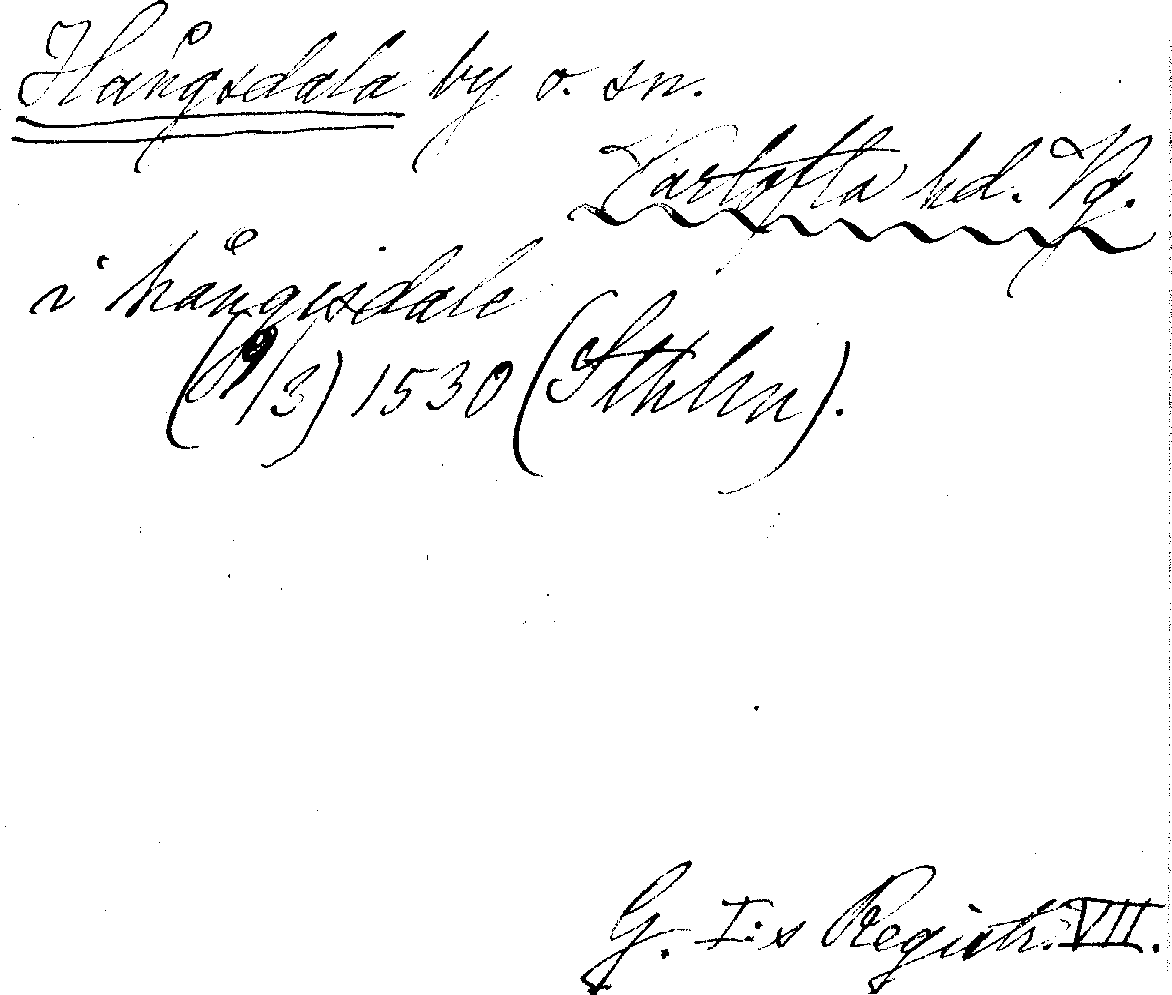 Hångsdala by o. sn.
Vartofta hd. Vg.
i hångisdale
(9/3) 1530 (Sthlm).
G. I:s Registr. VII.